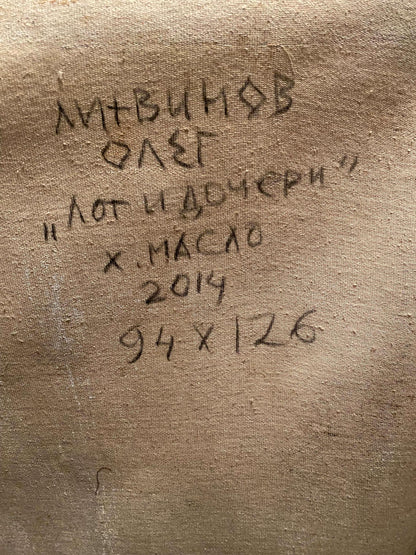 ЛИТВИНОВ
ОЛЕГ
„ЛОТ И ДОЧЕРИ”
Х. МАСЛО
2014
94 X 126